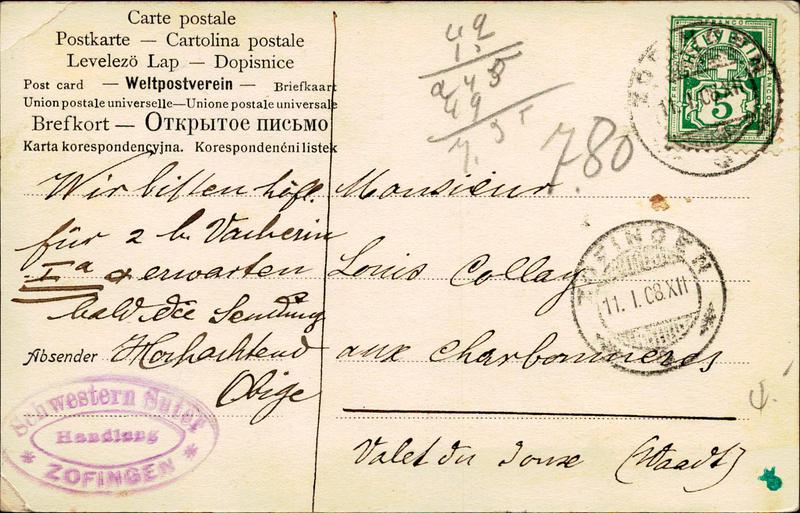 Carte postale
Postkarte — Cartolina postale
Levelezö Lap — Dopisnice
Post card — Weltpostverein — Briefkaart
Union postale universelle—Unione postale universale
Brefkort — Открытое письмо
Karta korespondencyjna. Korespondenční listek
Wir bitten höfl.
für 2 b. Vacherin
Iᵃ & erwarten
bald die Sendung
Absender Hochachtend
Obige
Schwestern Suter
Handlung
ZOFINGEN
49
245
49
7.35
7.80
FRANCO
HELVETIA
5
11.I.08.XII
Monsieur
Louis Collay
aux Charbonnieres
Valet du Joux (Waadt)
ZOFINGEN
11.I.08.XII